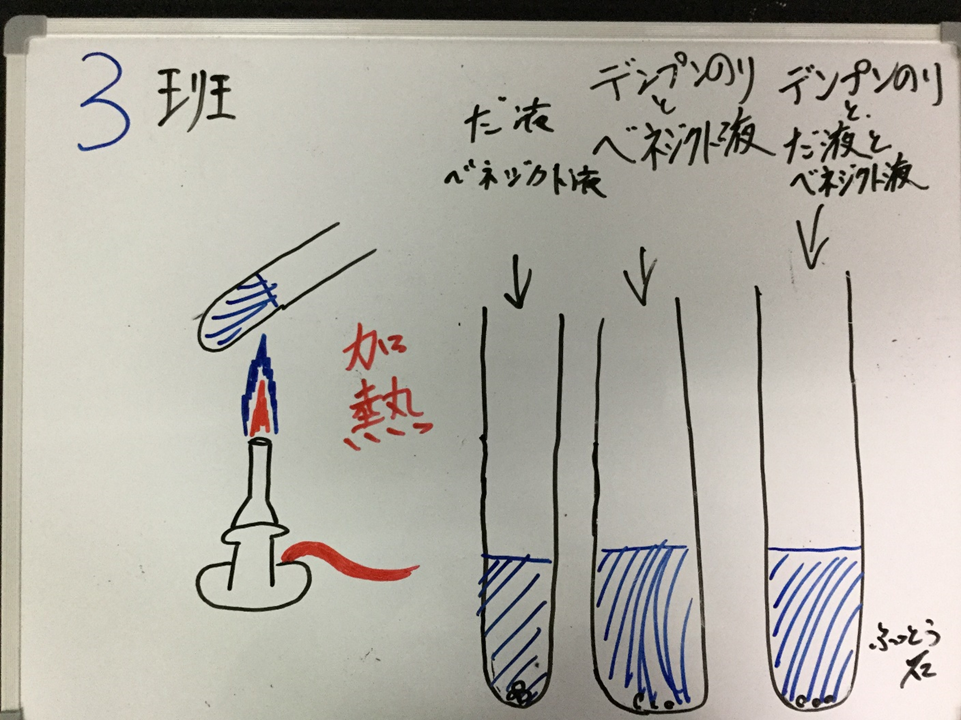 3班
だ液
ベネジクト液
デンプンのり
と
ベネジクト液
デンプンのり
と
だ液と
ベネジクト液
加
熱
ふっとう
石